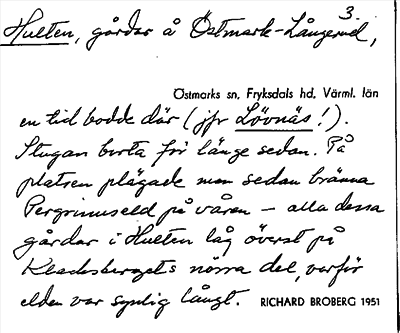 3.
Hulten, gårdar å Östmark-Långerud,
Östmarks sn, Fryksdals hd, Värml. län
en tid bodde där (jfr Lövnäs!).
Stugan borta för länge sedan. På
platsen plägade man sedan bränna
Pergrimuseld på våren – alla dessa
gårdar i Hulten låg överst på
norra del, varför
elden var synlig långt. RICHARD BROBERG 1951